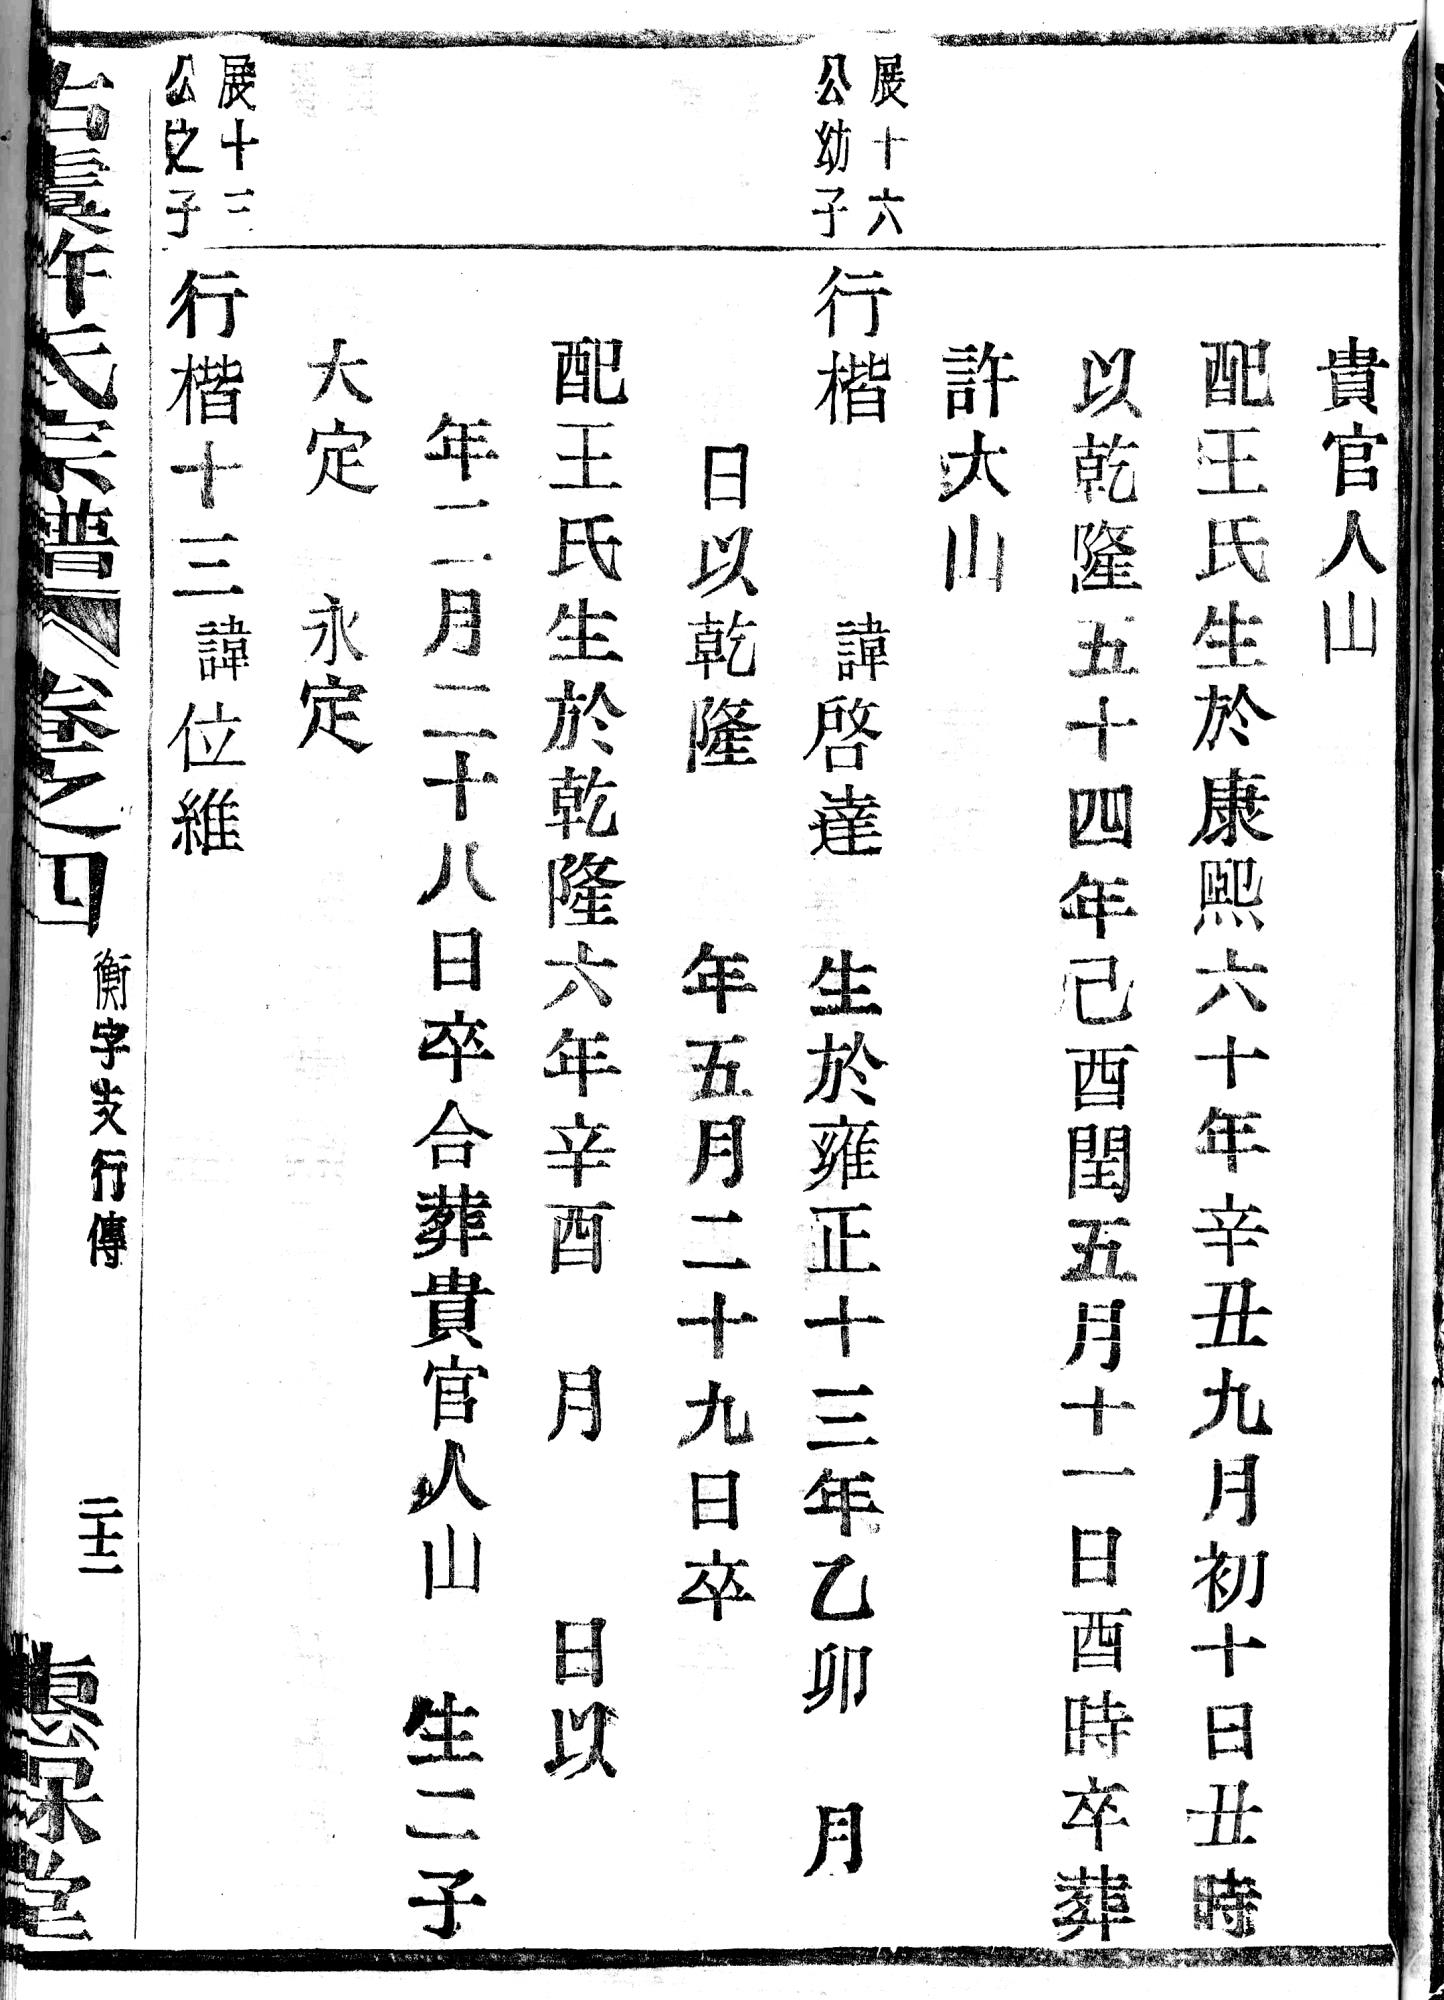 貴官人山
配王氏生於康熙六十年辛丑九月初十日丑時
以乾隆五十四年己酉閏五月十一日酉時卒葬
許大山
展十六
公幼子
行楷　諱啓達　生於雍正十三年乙卯　月
日以乾隆　年五月二十九日卒
配王氏生於乾隆六年辛酉　月　日以
年二月二十八日卒合葬貴官人山　生二子
大定　永定
展十三
公之子
行楷十三諱位維
古虞許氏宗譜　卷之四　衡字支行傳　二十二